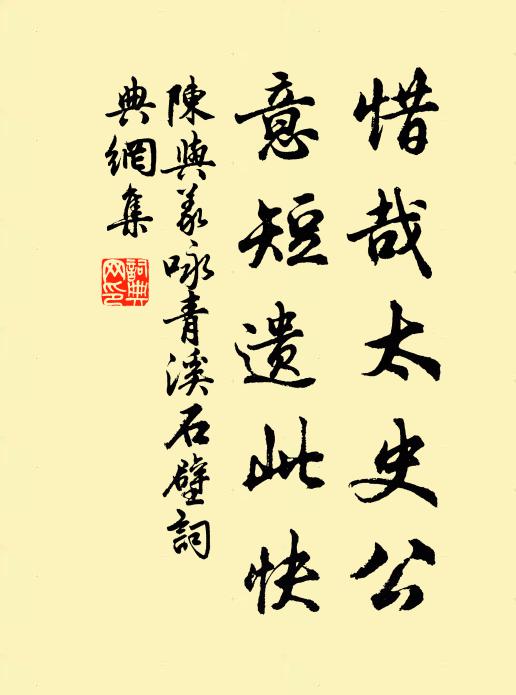 惜哉太史公
意短遗此快
陳與義咏青溪石壁詞
典網集
詞典网印